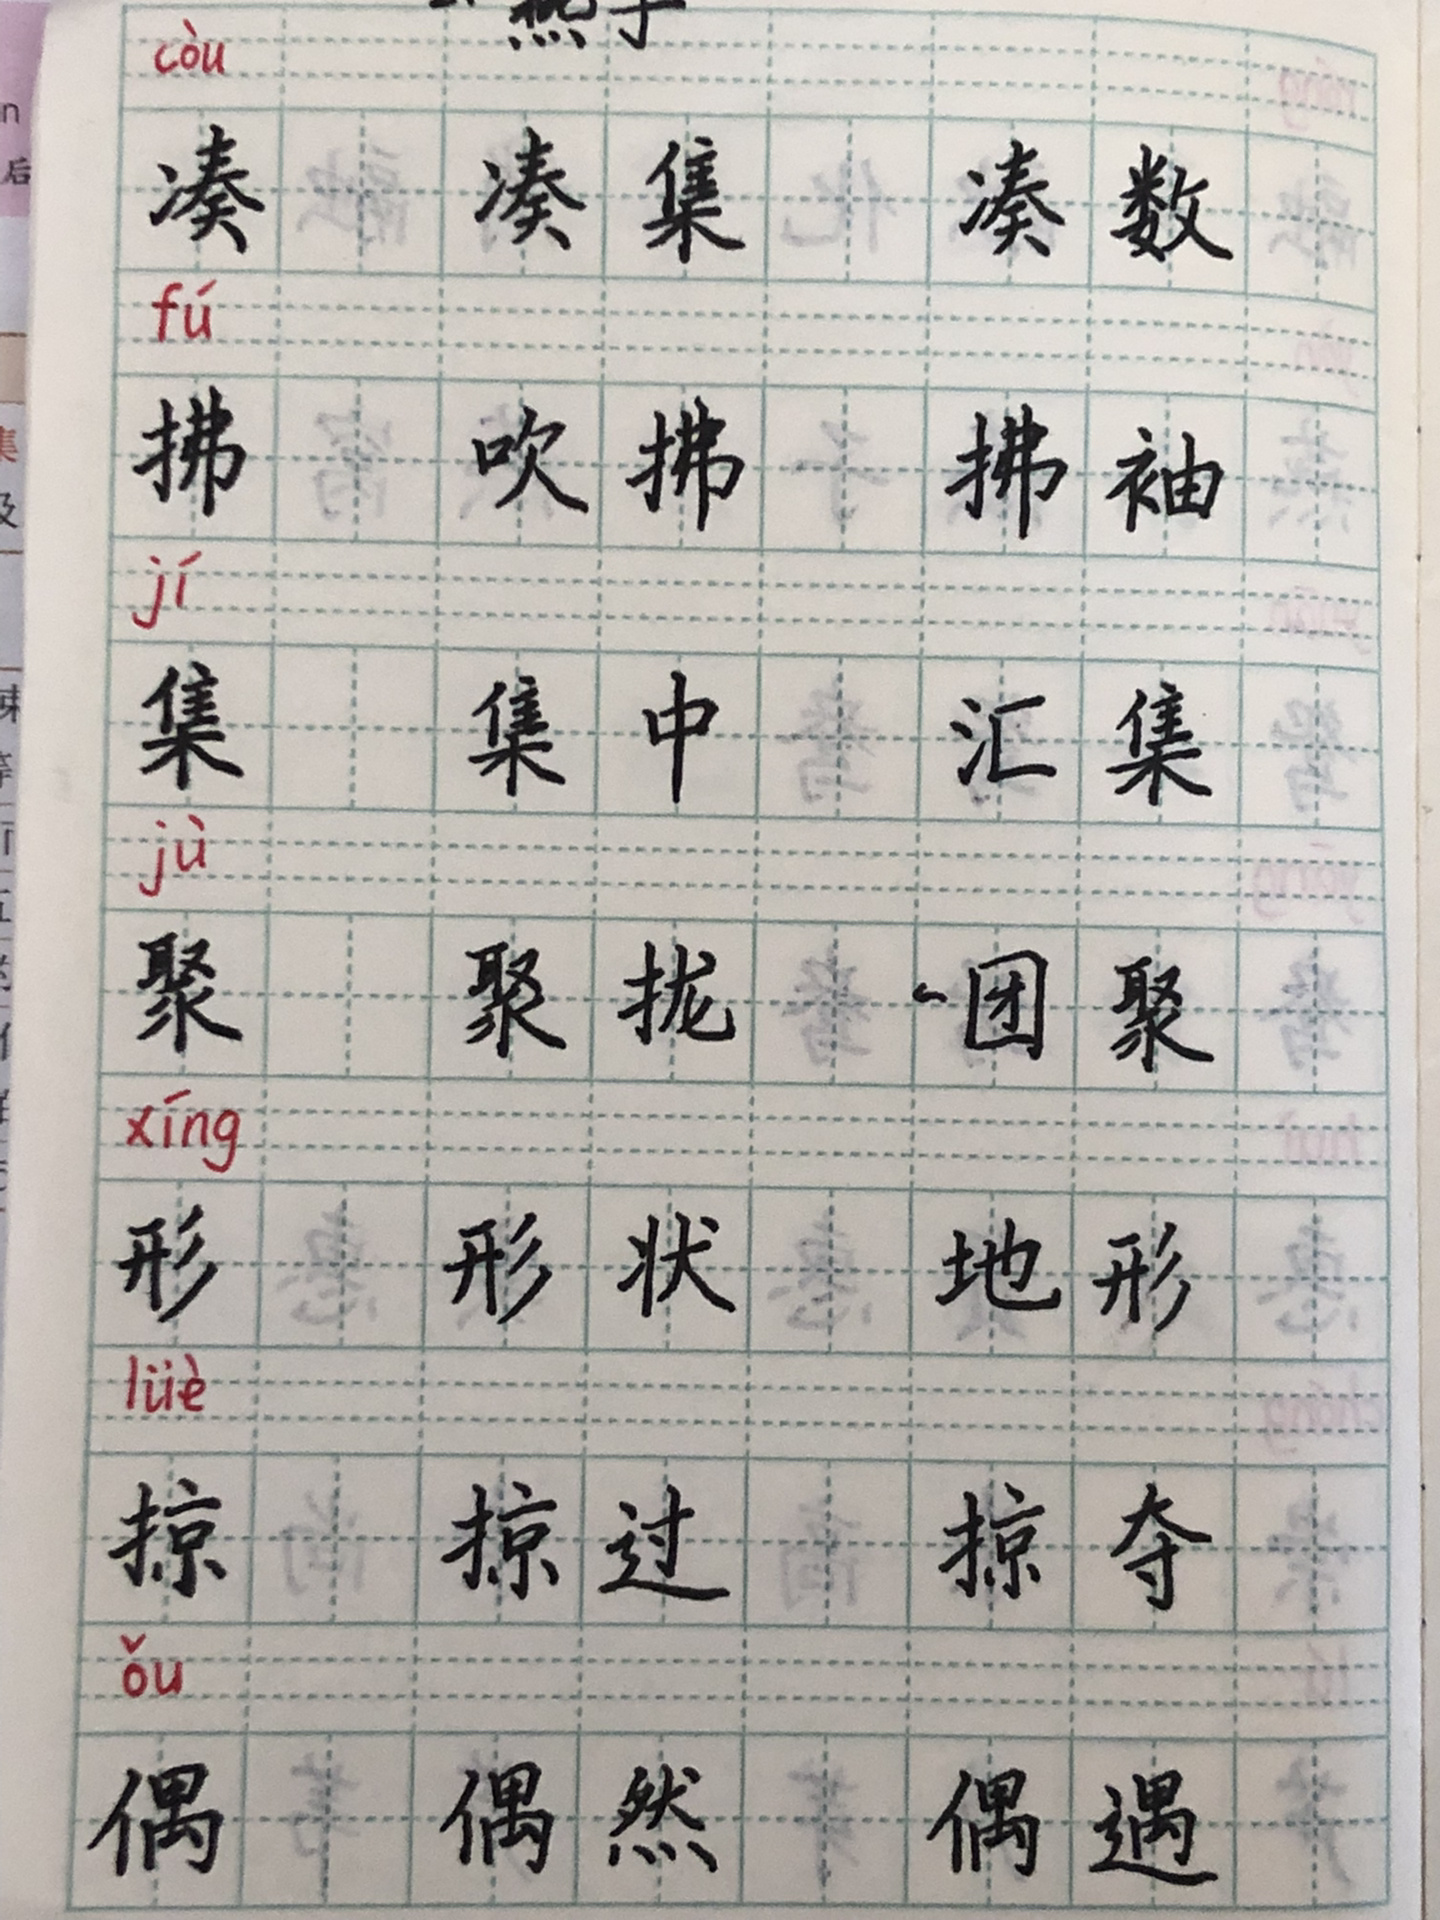 燕子
còu
凑 凑集 凑数
fú
拂 吹拂 拂袖
jí
集 集中 汇集
jù
聚 聚拢 团聚
xíng
形 形状 地形
lüè
掠 掠过 掠夺
ǒu
偶 偶然 偶遇